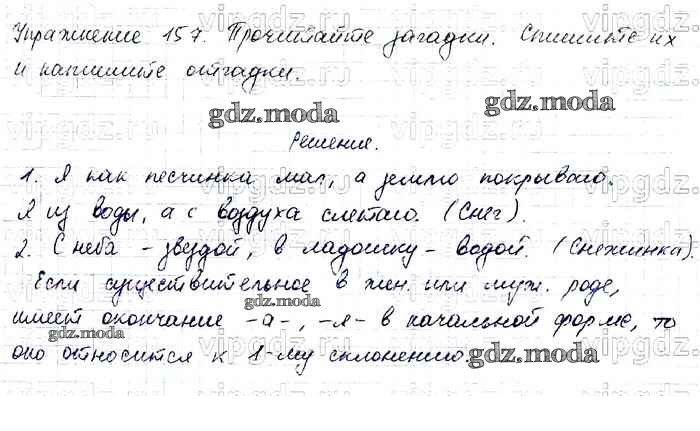 Упражнение 157. Прочитайте загадки. Спишите их
и напишите отгадки.
gdz.moda
Решение.
1. Я как песчинка мал, а землю покрываю.
Я из воды, а с воздуха слетаю. (Снег).
2. С неба - звездой, в ладошку - водой. (Снежинка).
Если существительное в жен. или муж. роде,
gdz.moda
имеет окончание -а-, -я- в начальной форме, то
оно относится к 1-му склонению.
gdz.moda
vipgdz.ru